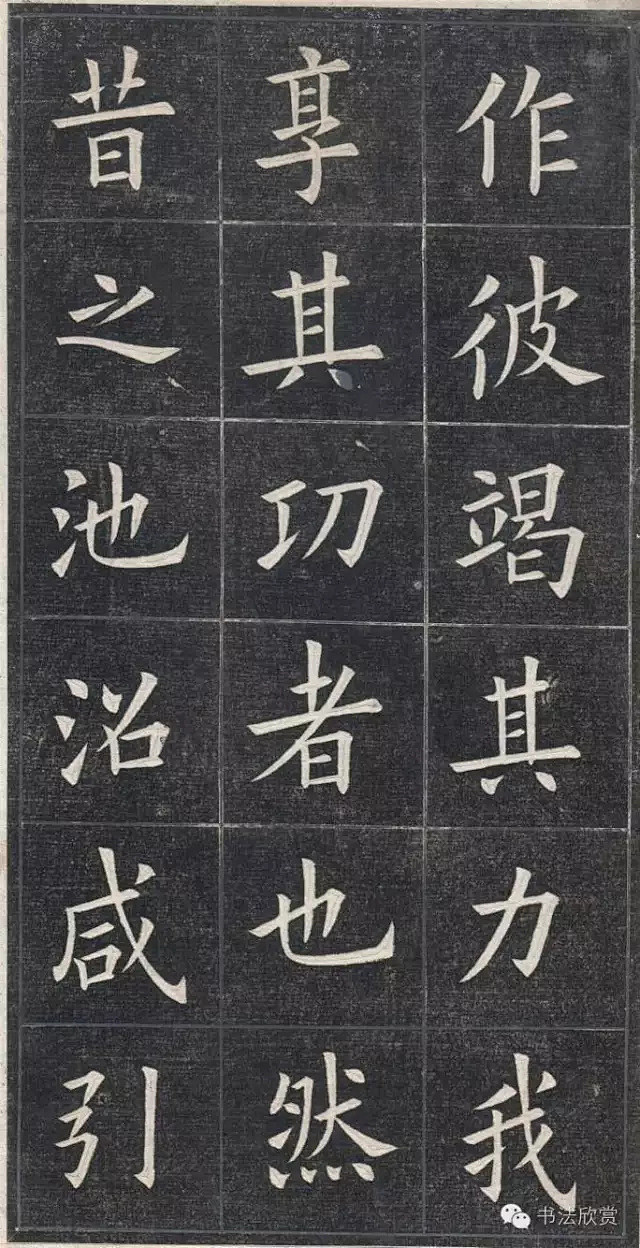 作彼竭其力我
享其功者也然
昔之池沼咸引
书法欣赏